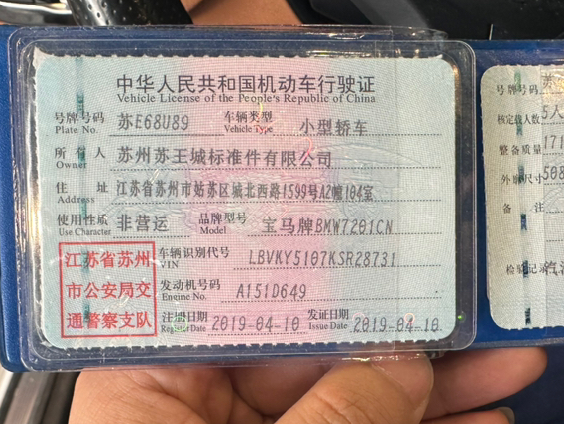 中华人民共和国机动车行驶证
Vehicle License of the People's Republic of China
号牌号码 苏E68U89 车辆类型 小型轿车
Plate No. Vehicle Type
所有人 苏州苏王城标准件有限公司
Owner
住址 江苏省苏州市姑苏区城北西路1599号A2幢104室
Address
使用性质 非营运 品牌型号 宝马牌BMW7201CN
Use Character Model
江苏省苏州
市公安局交
通警察支队
车辆识别代号 LBVKY5107KSR28731
VIN
发动机号码 A151D649
Engine No.
注册日期 2019-04-10 发证日期 2019-04-10
Register Date Issue Date
号牌号码
核定载人数 5人
整备质量 171
外廓尺寸 508
备注
检验记录